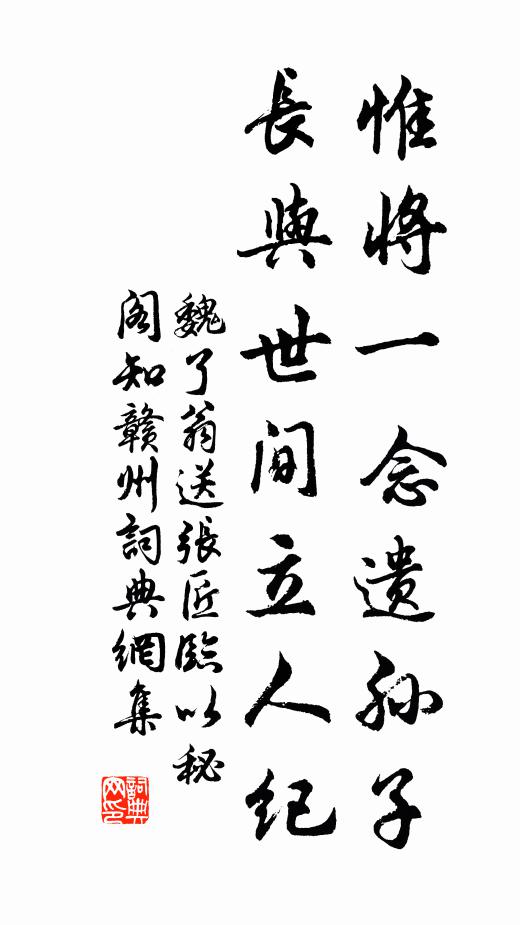 惟將一念遺孫子
長與世間立人紀
魏了翁送張匠監以秘
閣知贛州詞典網集
詞典
网印